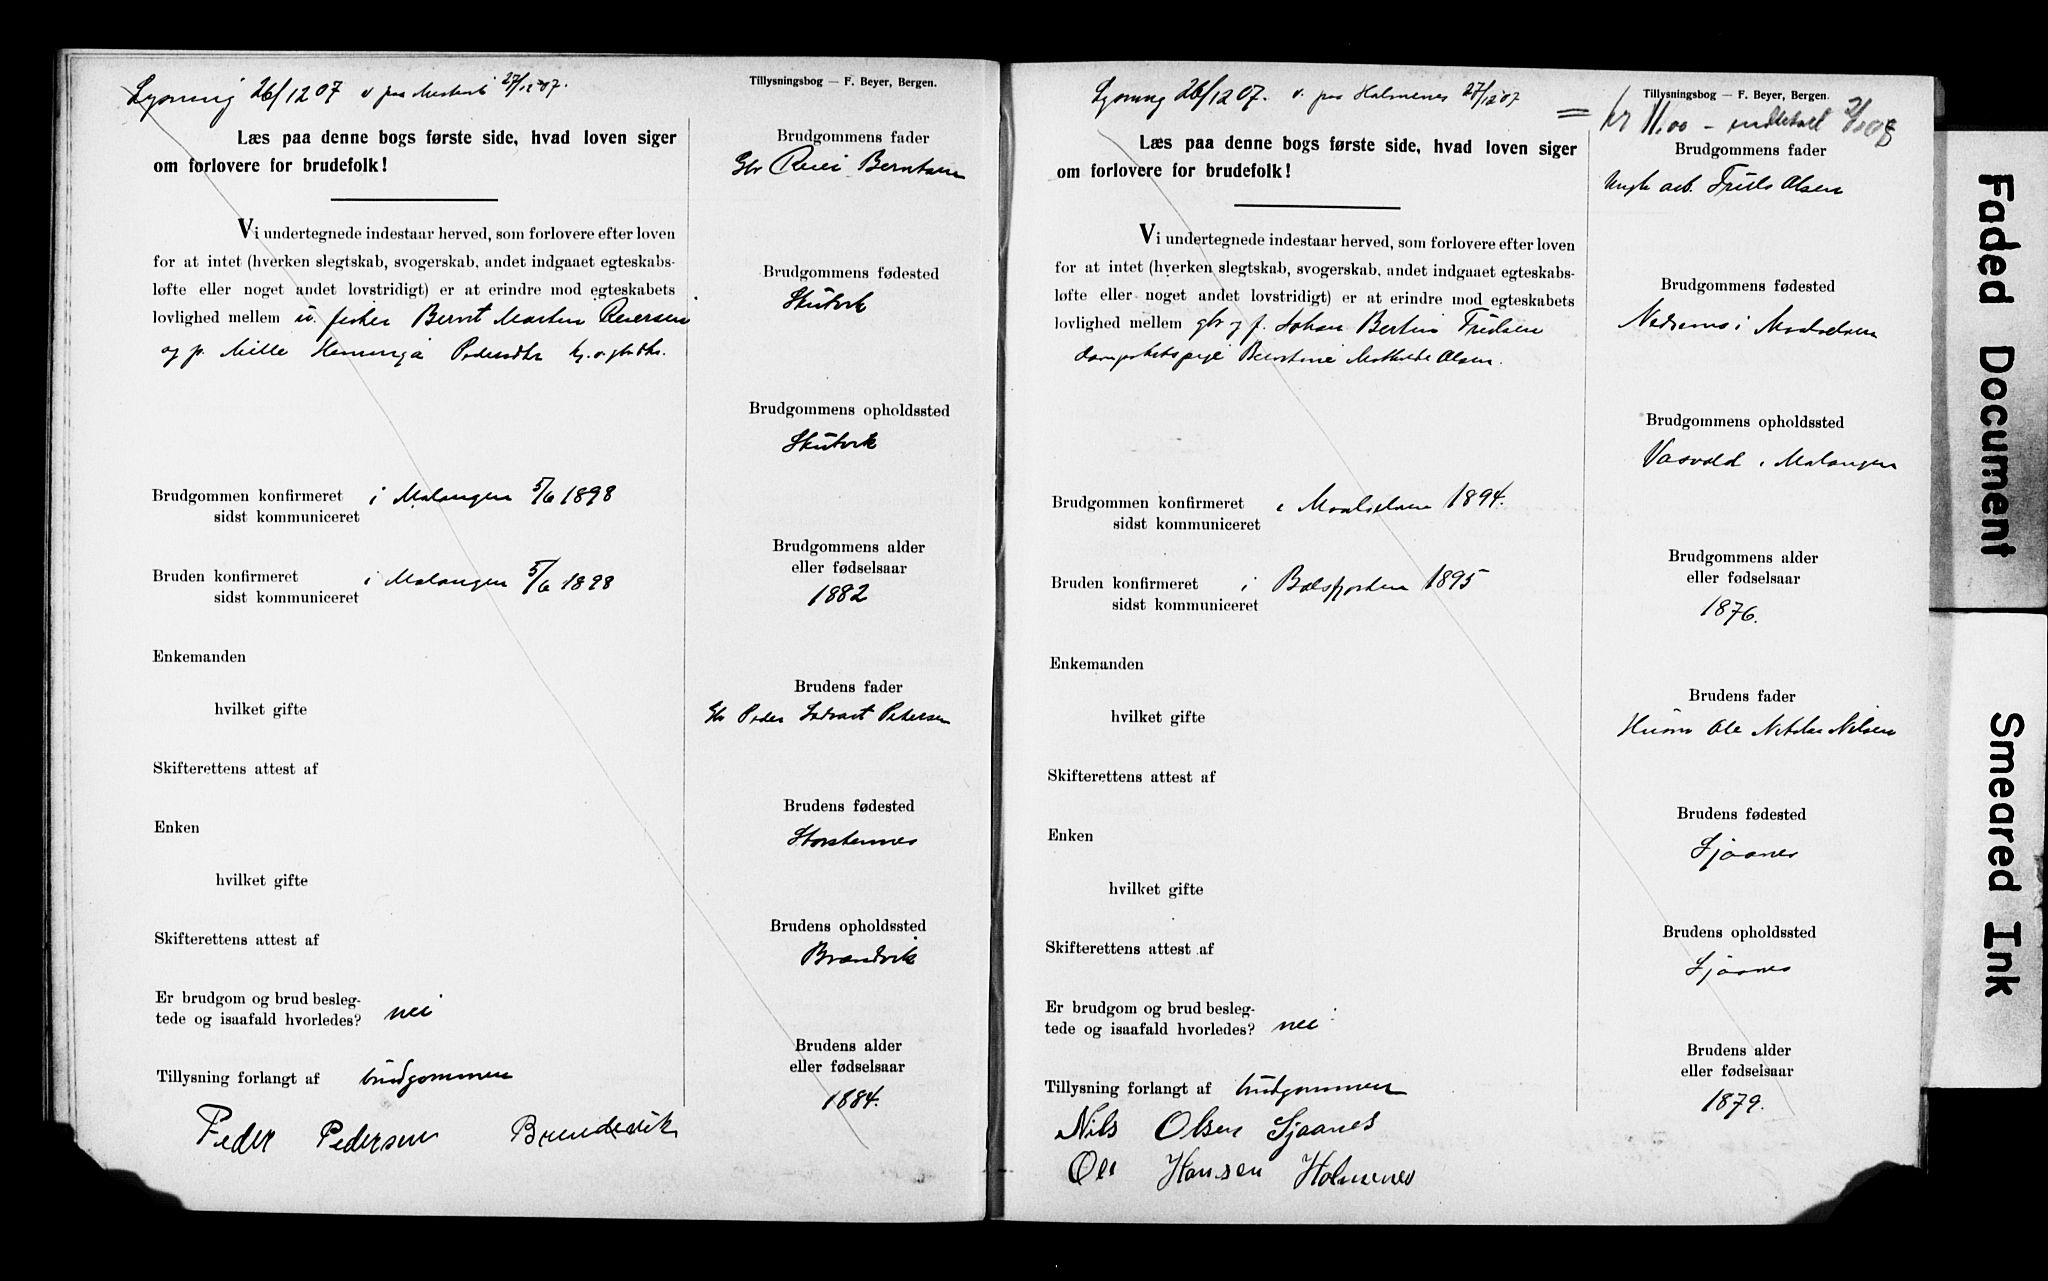 Lysning 26/12 07 v. paa 27/12 07.
Tillysningsbog — F. Beyer, Bergen.
Læs paa denne bogs første side, hvad loven siger
om forlovere for brudefolk!
Vi undertegnede indestaar herved, som forlovere efter loven
for at intet (hverken slegtskab, svogerskab, andet indgaaet egteskabs-
løfte eller noget andet lovstridigt) er at erindre mod egteskabets
lovlighed mellem u. fisker Bernt Martin Reiersen
og p. Mille Hemminga Pedersdtr
Brudgommen konfirmeret i Malangen 5/6 1898
sidst kommuniceret
Bruden konfirmeret i Malangen 5/6 1898
sidst kommuniceret
Enkemanden
hvilket gifte
Skifterettens attest af
Enken
hvilket gifte
Skifterettens attest af
Er brudgom og brud besleg-
tede og isaafald hvorledes? nei
Tillysning forlangt af brudgommen
Peder Pedersen Brendevik
Brudgommens fader
Gbr Reier Berntsen
Brudgommens fødested
Skutvik
Brudgommens opholdssted
Skutvik
Brudgommens alder
eller fødselsaar
1882
Brudens fader
Gbr Peder Edvart Petersen
Brudens fødested
Storstennes
Brudens opholdssted
Brændvik
Brudens alder
eller fødselsaar
1884.
Lysning 26/12 07. v. paa Holmenes 27/12 07
Tillysningsbog — F. Beyer, Bergen.
= kr 11.00 – indbetalt
Læs paa denne bogs første side, hvad loven siger
om forlovere for brudefolk!
Vi undertegnede indestaar herved, som forlovere efter loven
for at intet (hverken slegtskab, svogerskab, andet indgaaet egteskabs-
løfte eller noget andet lovstridigt) er at erindre mod egteskabets
lovlighed mellem gbr og f. Johan Bertin Trulsen
Berntine Mathilde Olsen.
Brudgommen konfirmeret i Maalselven 1894.
sidst kommuniceret
Bruden konfirmeret i Balsfjorden 1895
sidst kommuniceret
Enkemanden
hvilket gifte
Skifterettens attest af
Enken
hvilket gifte
Skifterettens attest af
Er brudgom og brud besleg-
tede og isaafald hvorledes? nei
Tillysning forlangt af brudgommen
Nils Olsen Sjaanes
Ole Hansen Holmenes
Brudgommens fader
arb. Truls Olsen
Brudgommens fødested
i Maalselven
Brudgommens opholdssted
Vasvold i Malangen
Brudgommens alder
eller fødselsaar
1876.
Brudens fader
Husm Ole Nilsen
Brudens fødested
Sjaanes
Brudens opholdssted
Sjaanes
Brudens alder
eller fødselsaar
1879.
Faded Document
Smeared Ink